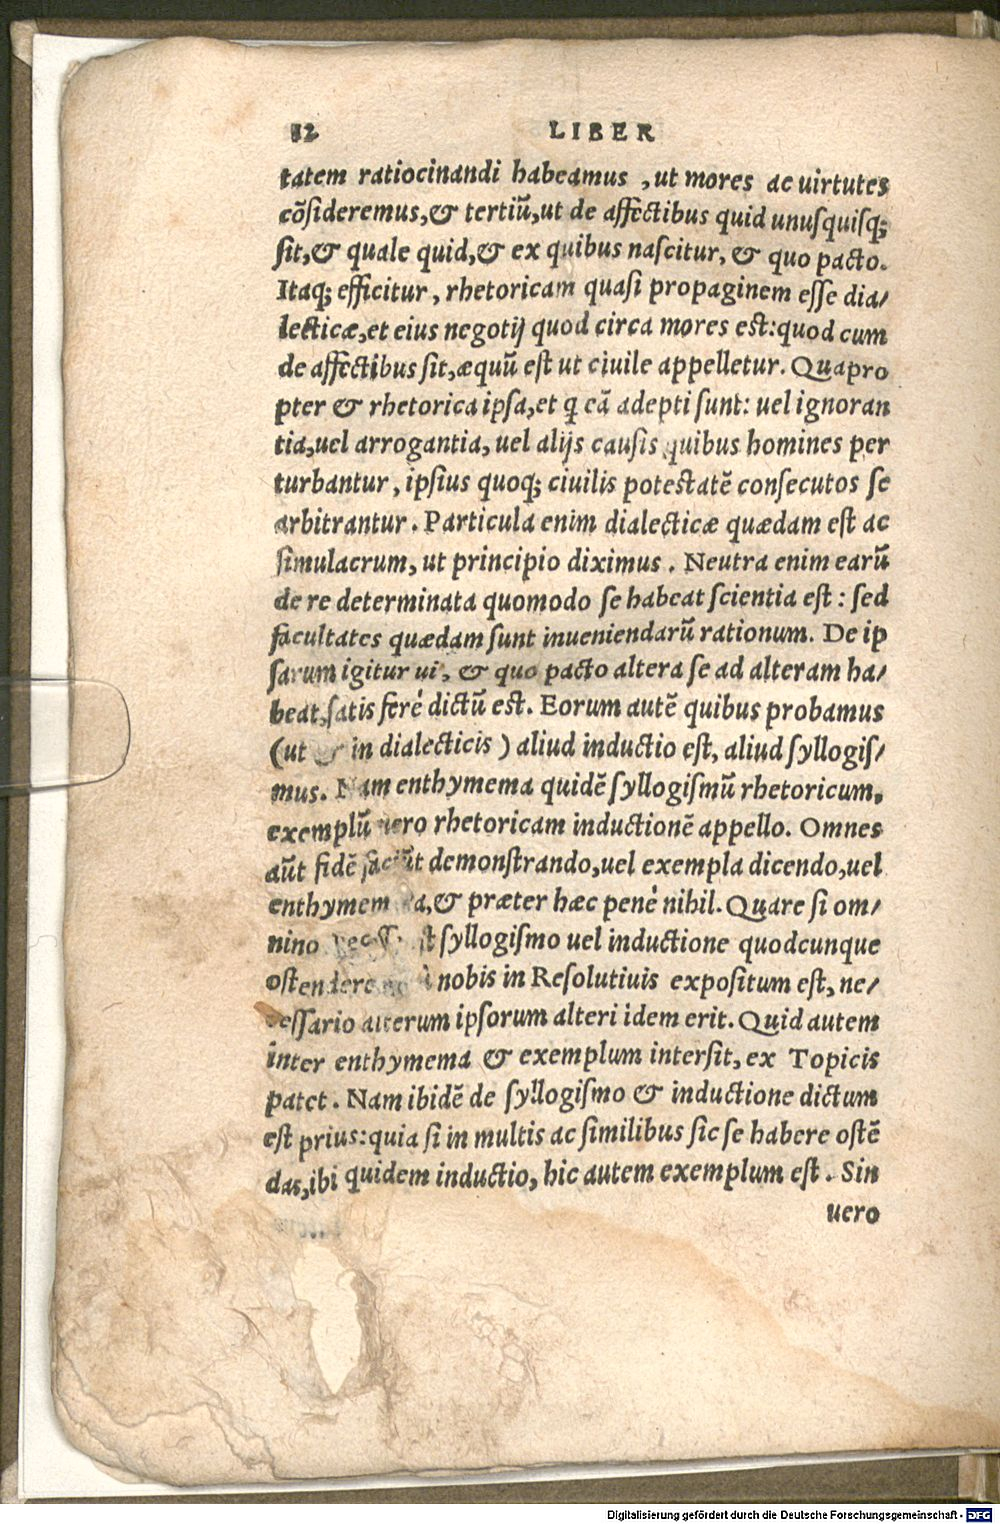 12 LIBER
tatem ratiocinandi habeamus, ut mores ac uirtutes
cõſideremus, & tertiũ, ut de affectibus quid unuſquiſq;
ſit, & quale quid, & ex quibus naſcitur, & quo pacto.
Itaq; efficitur, rhetoricam quaſi propaginem eſſe dia/
lecticæ, et eius negotij quod circa mores est: quod cum
de affectibus ſit, æquũ eſt ut ciuile appelletur. Quapro
pter & rhetorica ipſa, et q eã adepti ſunt: uel ignoran
tia, uel arrogantia, uel alijs causis quibus homines per
turbantur, ipſius quoq; ciuilis potestatẽ consecutos ſe
arbitrantur. Particula enim dialecticæ quædam eſt ac
ſimulacrum, ut principio diximus. Neutra enim earũ
de re determinata quomodo ſe habeat ſcientia eſt: ſed
facultates quædam ſunt inueniendarũ rationum. De ip
ſarum igitur ui, & quo pacto altera ſe ad alteram ha/
beat, ſatis ferè dictũ eſt. Eorum autẽ quibus probamus
(ut in dialecticis) aliud inductio eſt, aliud ſyllogiſ/
mus. Nam enthymema quidẽ ſyllogiſmũ rhetoricum,
exemplũ uero rhetoricam inductionẽ appello. Omnes
aũt fidẽ faciũt demonſtrando, uel exempla dicendo, uel
enthymemata, & præter hæc penè nihil. Quare ſi om/
nino ſyllogiſmo uel inductione quodcunque
oſtendere à nobis in Reſolutiuis expoſitum eſt, ne/
ceſſario alterum ipſorum alteri idem erit. Quid autem
inter enthymema & exemplum interſit, ex Topicis
patet. Nam ibidẽ de ſyllogiſmo & inductione dictum
eſt prius: quia ſi in multis ac ſimilibus ſic ſe habere oſtẽ
das, ibi quidem inductio, hic autem exemplum eſt. Sin
uero
Digitalisierung gefördert durch die Deutsche Forschungsgemeinschaft - DFG